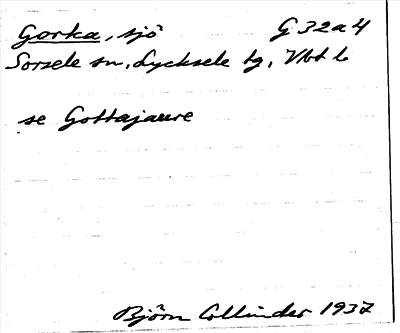 Gorka, sjö G 32 a 4
Sorsele sn, Lycksele tg, Vbt l
se Gottajaure
Björn Collinder 1937